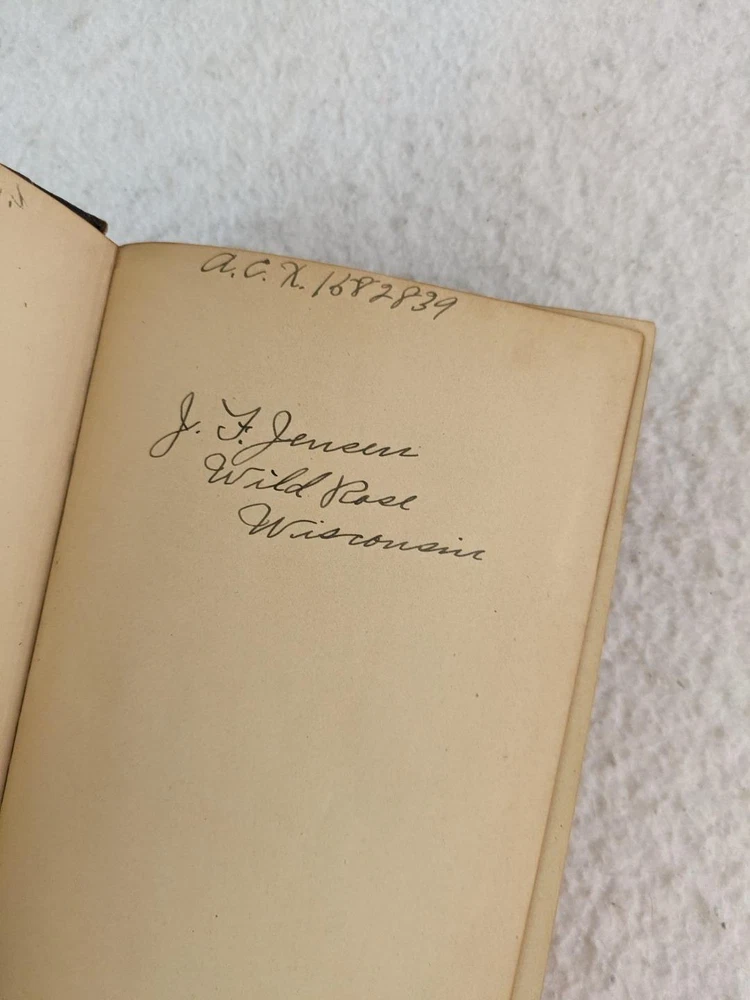 A.C.X. 1682839
J. F. Jensen
Wild Rose
Wisconsin